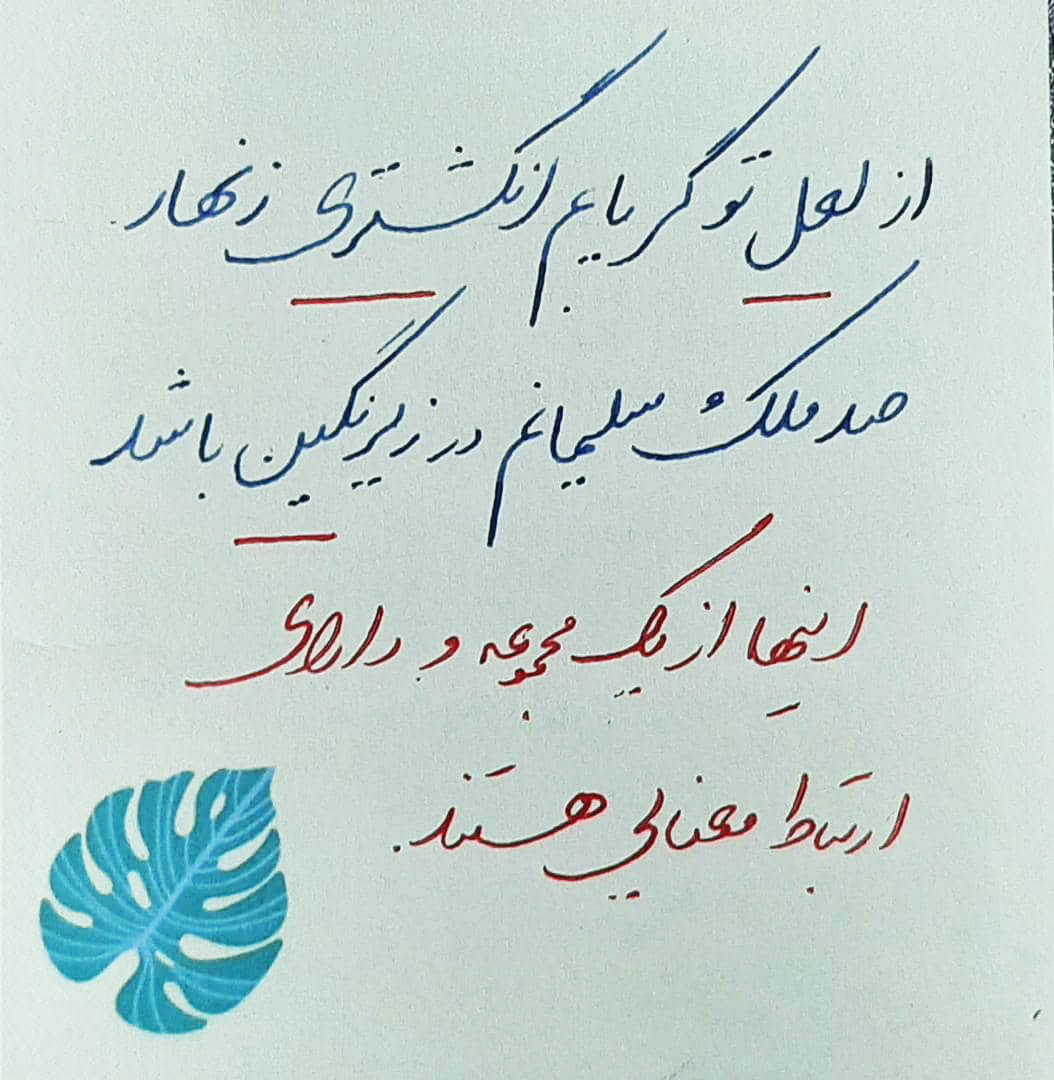 از لعل تو گر یابم انگشتری زنهار
صد ملک سلیمانم در زیر نگین باشد
اینها از یک مجموعه و دارای
ارتباط معنایی هستند.